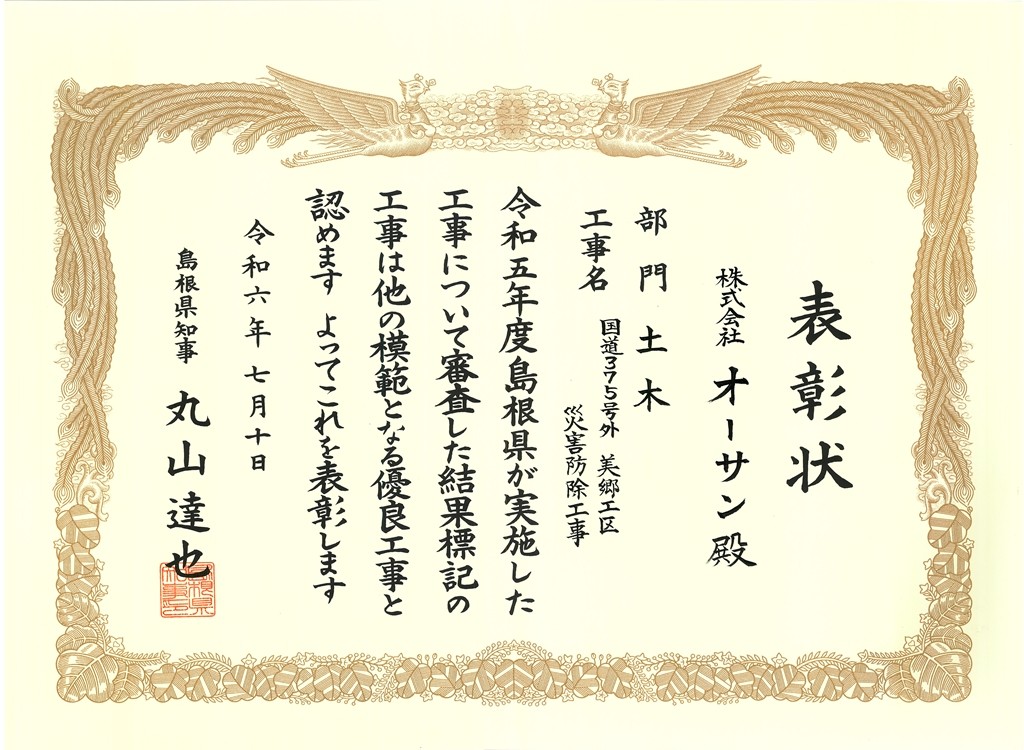 表彰状
株式会社 オーサン 殿
部門 土木
工事名 国道375号外 美郷工区
災害防除工事
令和五年度島根県が実施した
工事について審査した結果標記の
工事は他の模範となる優良工事と
認めます よってこれを表彰します
令和六年 七月十日
島根県知事 丸山達也